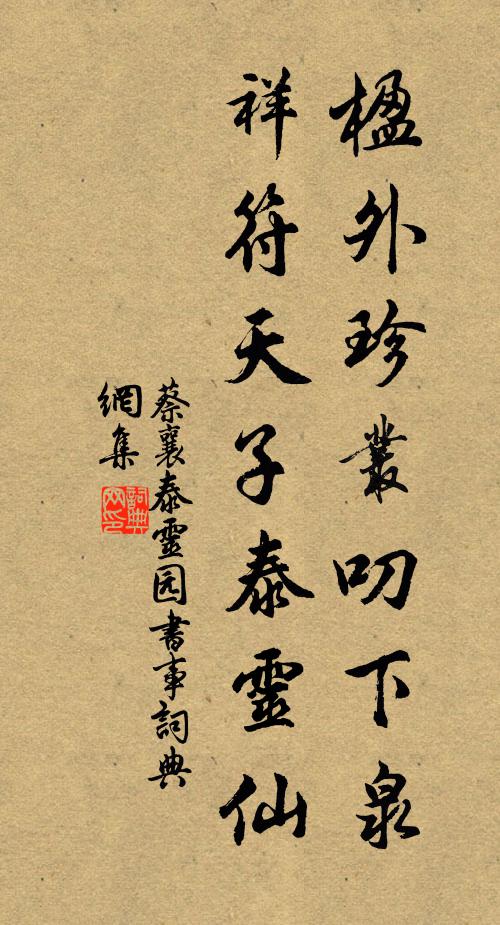 楹外珍叢叨下泉
祥符天子泰靈仙
蔡襄泰靈园書事詞典
網集
詞典网印